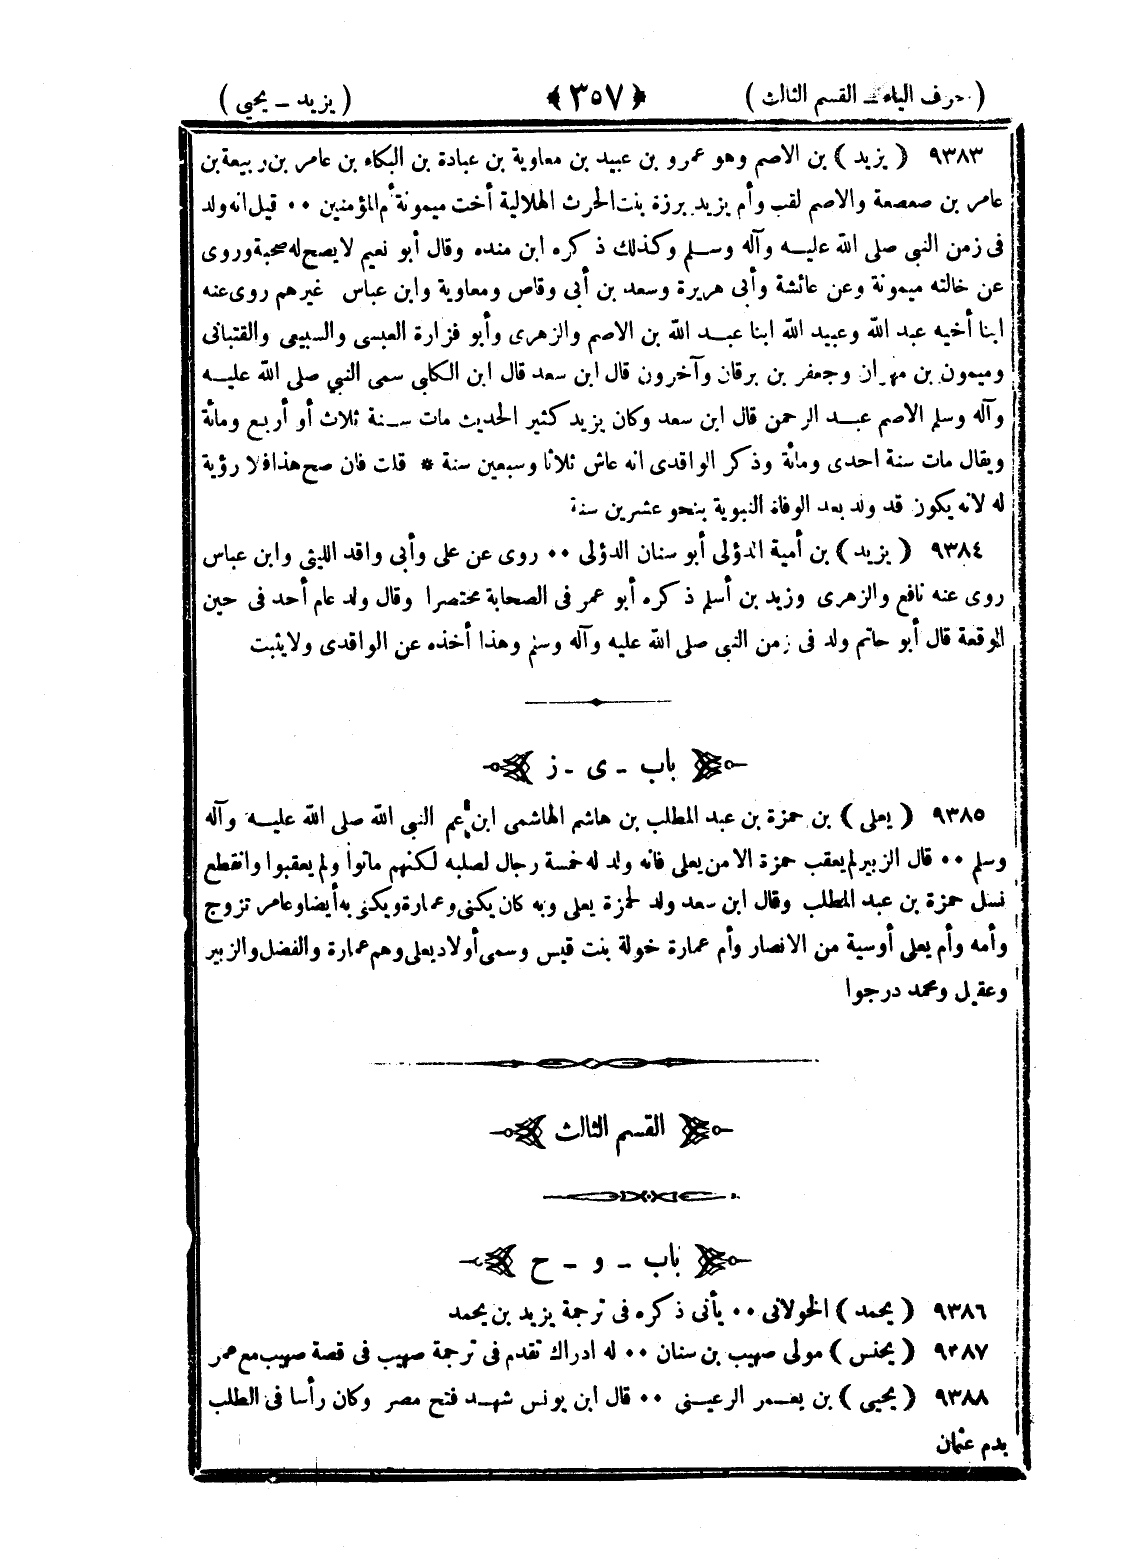 (حرف الياء ـ القسم الثالث) ﴿٣٥٧﴾ (يزيد ـ يحيي)
٩٣٨٣ (يزيد) بن الاصم وهو عمرو بن عبيد بن معاوية بن عبادة بن البكاء بن عامر بن ربيعة بن
عامر بن صعصعة والاصم لقب وأم يزيد برزة بنت الحرث الهلالية أخت ميمونة أم المؤمنين ٠٠ قيل انه ولد
فى زمن النبى صلى الله عليه وآله وسلم وكذلك ذكره ابن منده وقال أبو نعيم لا يصح له صحبة وروى
عن خالته ميمونة وعن عائشة وأبى هريرة وسعد بن أبى وقاص ومعاوية وابن عباس غيرهم روى عنه
ابنا أخيه عبد الله وعبيد الله ابنا عبد الله بن الاصم والزهرى وأبو فزارة العبسى والسبيعى والقتبانى
وميمون بن مهران وجعفر بن برقان وآخرون قال ابن سعد قال ابن الكلبى سمى النبي صلى الله عليه
وآله وسلم الاصم عبد الرحمن قال ابن سعد وكان يزيد كثير الحديث مات سنة ثلاث أو أربع ومائة
ويقال مات سنة احدى ومائة وذكر الواقدى انه عاش ثلاثا وسبعين سنة * قلت فان صح هذا فلا رؤية
له لانه يكون قد ولد بعد الوفاة النبوية بنحو عشرين سنة
٩٣٨٤ (يزيد) بن أمية الدؤلى أبو سنان الدؤلى ٠٠ روى عن على وأبى واقد الليثى وابن عباس
روى عنه نافع والزهرى وزيد بن أسلم ذكره أبو عمر فى الصحابة مختصرا وقال ولد عام أحد فى حين
الوقعة قال أبو حاتم ولد فى زمن النبى صلى الله عليه وآله وسلم وهذا أخذه عن الواقدى ولايثبت
باب ـ ى ـ ز
٩٣٨٥ (يعلى) بن حمزة بن عبد المطلب بن هاشم الهاشمى ابن عم النبى الله صلى الله عليه وآله
وسلم ٠٠ قال الزبير لم يعقب حمزة الا من يعلى فانه ولد له خمسة رجال لصلبه لكنهم ماتوا ولم يعقبوا وانقطع
نسل حمزة بن عبد المطلب وقال ابن سعد ولد لحمزة يعلى وبه كان يكنى وعمارة ويكنى به أيضا وعامر تزوج
وأمه وأم يعلى أوسية من الانصار وأم عمارة خولة بنت قيس وسمى أولاد يعلى وهم عمارة والفضل والزبير
وعقيل ومحمد درجوا
القسم الثالث
باب ـ و ـ ح
٩٣٨٦ (يحمد) الخولانى ٠٠ يأتى ذكره فى ترجمة يزيد بن يحمد
٩٣٨٧ (يحنس) مولى صهيب بن سنان ٠٠ له ادراك تقدم فى ترجمة صهيب فى قصة صهيب مع عمر
٩٣٨٨ (يحيي) بن يعمر الرعيني ٠٠ قال ابن يونس شهد فتح مصر وكان رأسا فى الطلب
بدم عثمان